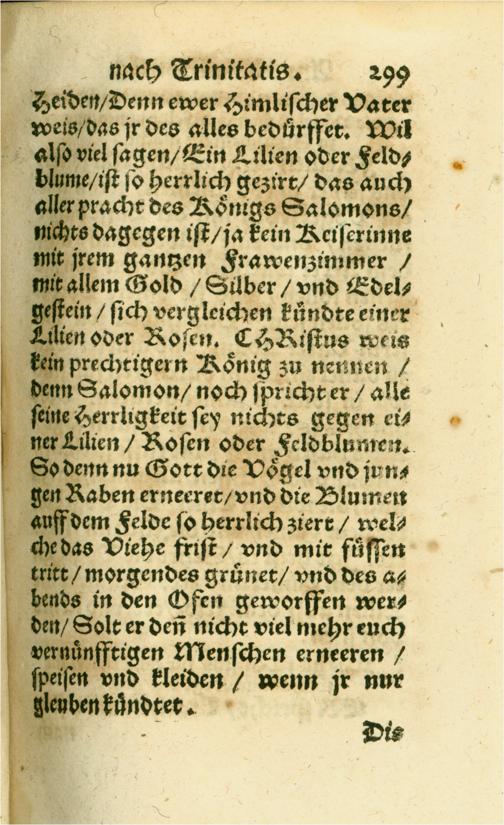 nach Trinitatis. 299
Heiden/Denn ewer Himlischer Vater
weis/das jr des alles bedürffet. Wil
also viel sagen/Ein Lilien oder Feld⸗
blume/ist so herrlich gezirt/das auch
aller pracht des Königs Salomons/
nichts dagegen ist/ja kein Keiserinne
mit jrem gantzen Frawenzimmer /
mit allem Gold / Silber / vnd Edel⸗
gestein / sich vergleichen kündte einer
Lilien oder Rosen. CHRistus weis
kein prechtigern König zu nennen /
denn Salomon/ noch spricht er / alle
seine Herrligkeit sey nichts gegen ei⸗
ner Lilien / Rosen oder Feldblumen.
So denn nu Gott die Vögel vnd jun⸗
gen Raben erneeret/vnd die Blumen
auff dem Felde so herrlich ziert / wel⸗
che das Viehe frist / vnd mit füssen
tritt / morgendes grünet/ vnd des a⸗
bends in den Ofen geworffen wer⸗
den/ Solt er deñ nicht viel mehr euch
vernünfftigen Menschen erneeren /
speisen vnd kleiden / wenn jr nur
gleuben kündtet.
Dis